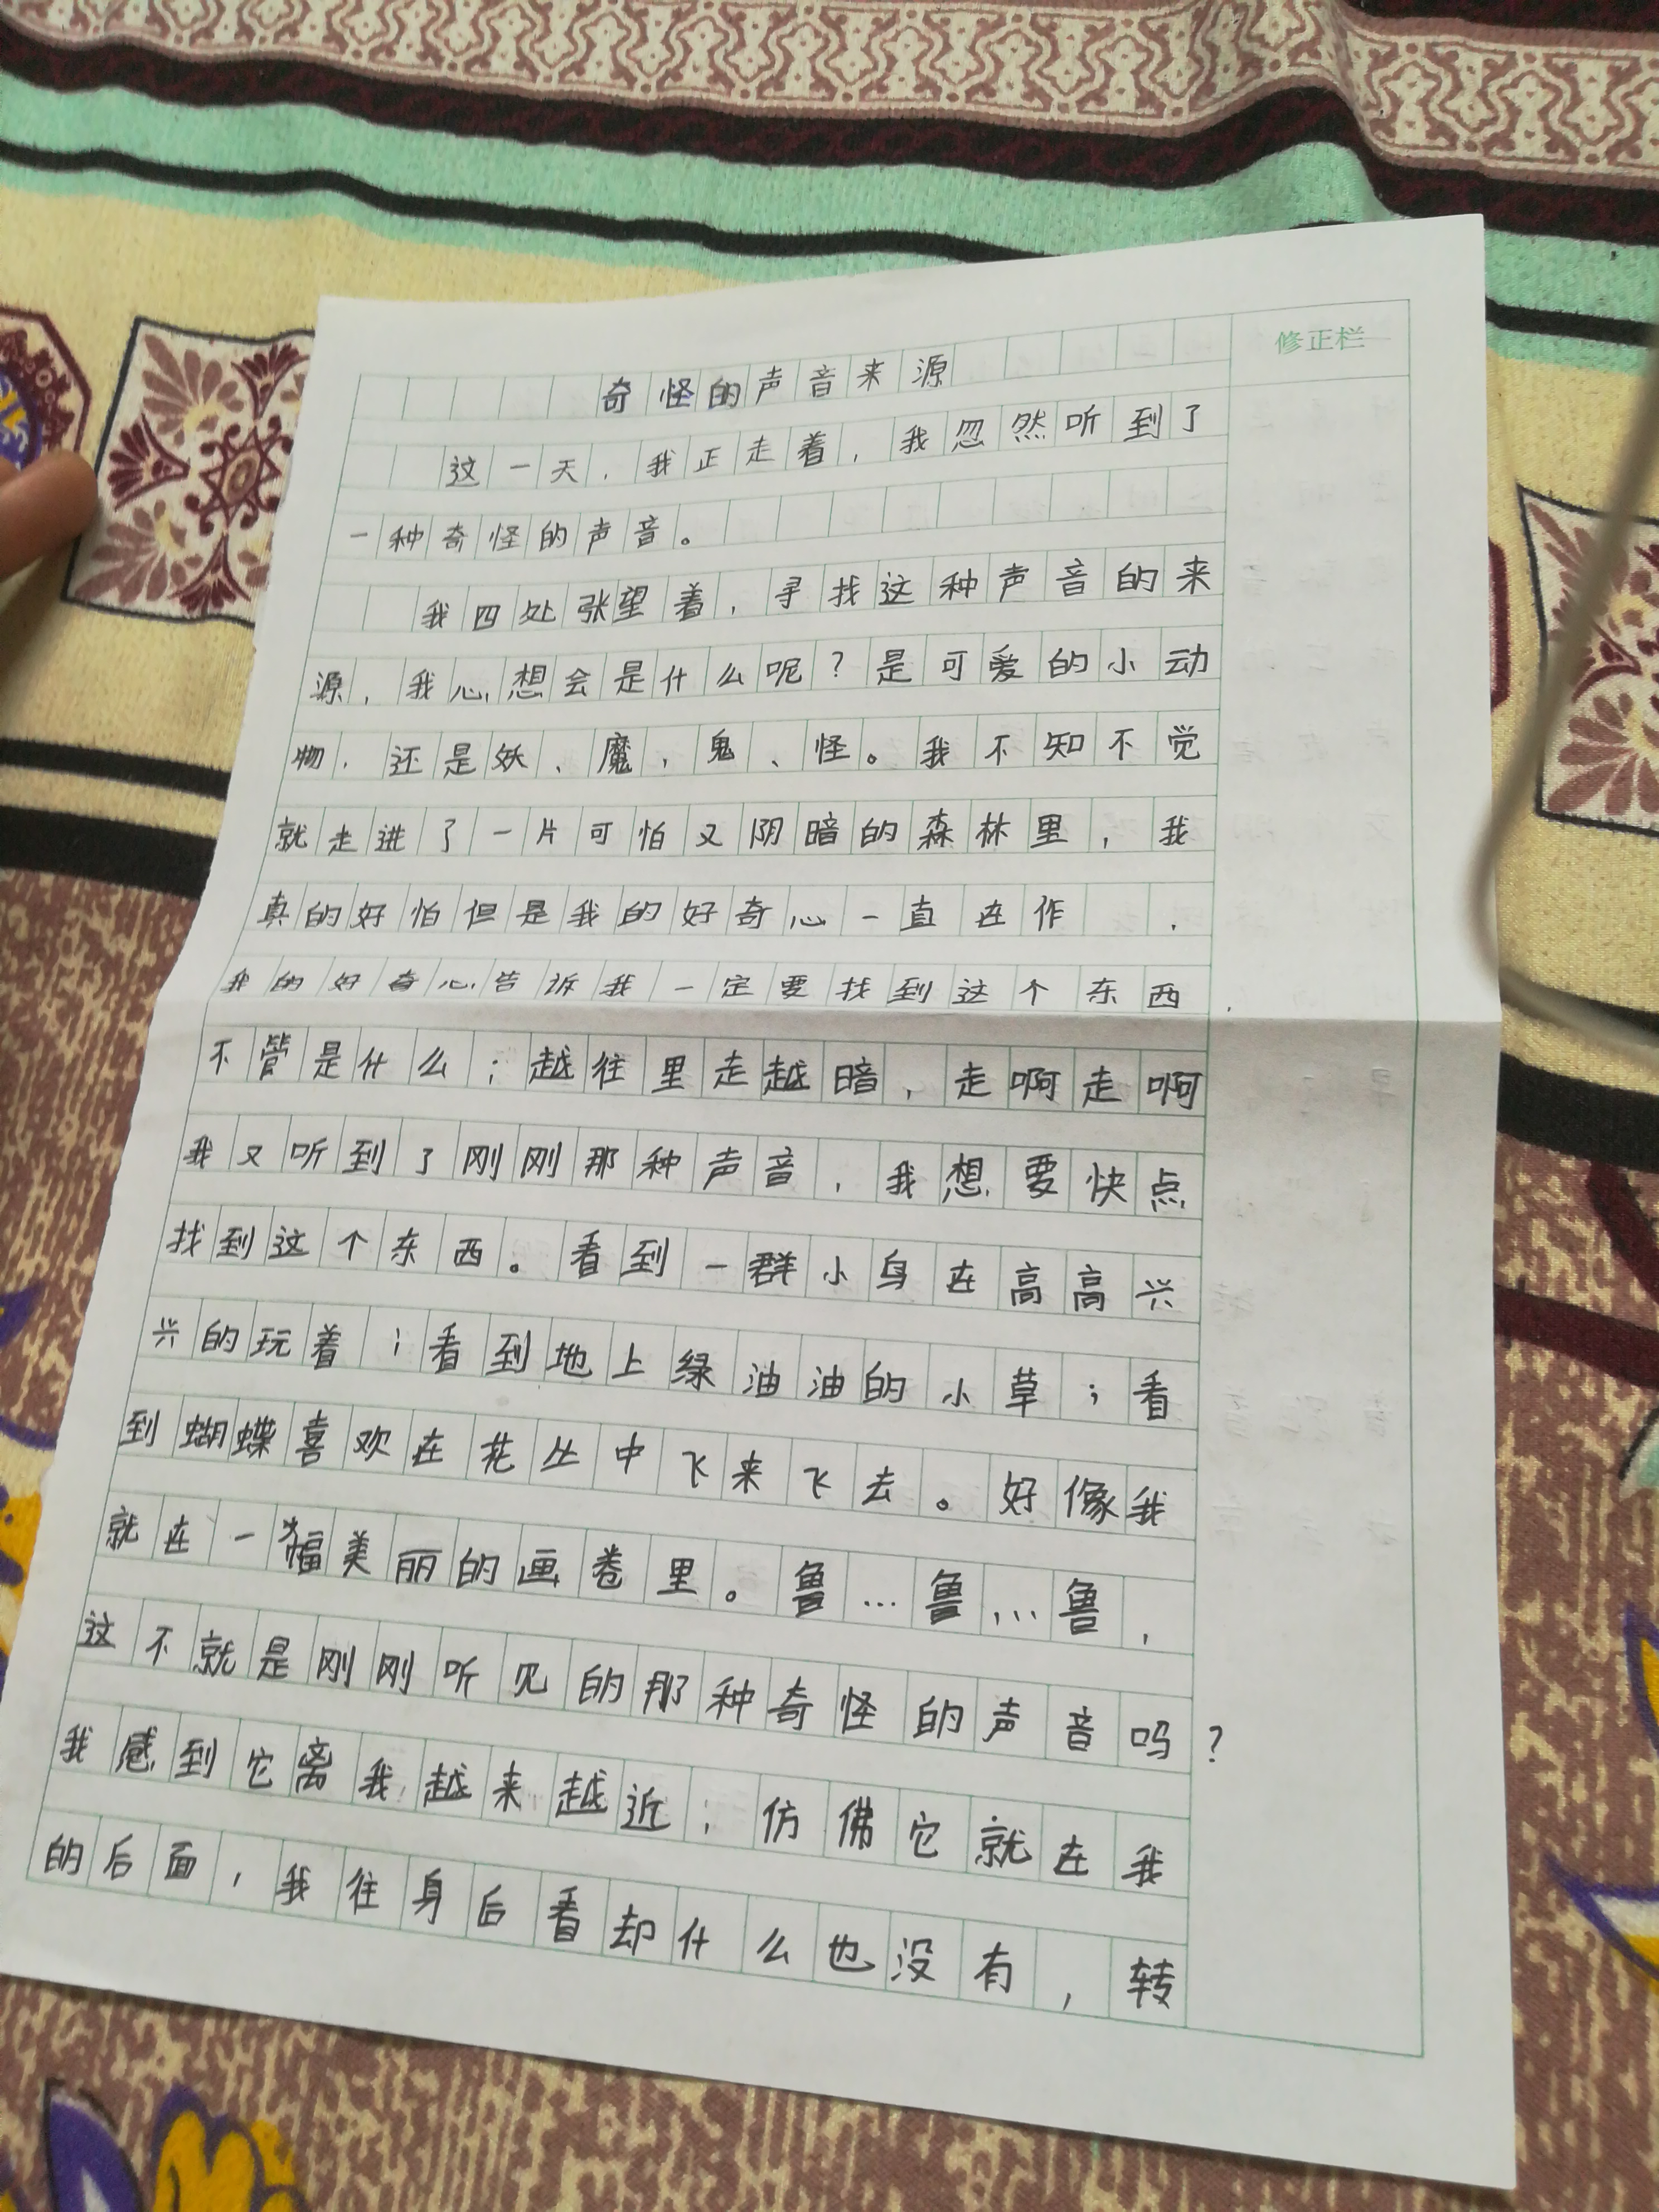 修正栏
奇怪的声音来源
这一天，我正走着，我忽然听到了
一种奇怪的声音。
我四处张望着，寻找这种声音的来
源，我心想会是什么呢？是可爱的小动
物，还是妖、魔，鬼、怪。我不知不觉
就走进了一片可怕又阴暗的森林里，我
真的好怕但是我的好奇心一直在作　，
我的好奇心告诉我一定要找到这个东西，
不管是什么；越往里走越暗，走啊走啊
我又听到了刚刚那种声音，我想要快点
找到这个东西。看到一群小鸟在高高兴
兴的玩着；看到地上绿油油的小草；看
到蝴蝶喜欢在花丛中飞来飞去。好像我
就在一幅美丽的画卷里。鲁…鲁，…鲁，
这不就是刚刚听见的那种奇怪的声音吗？
我感到它离我越来越近；仿佛它就在我
的后面，我往身后看却什么也没有，转